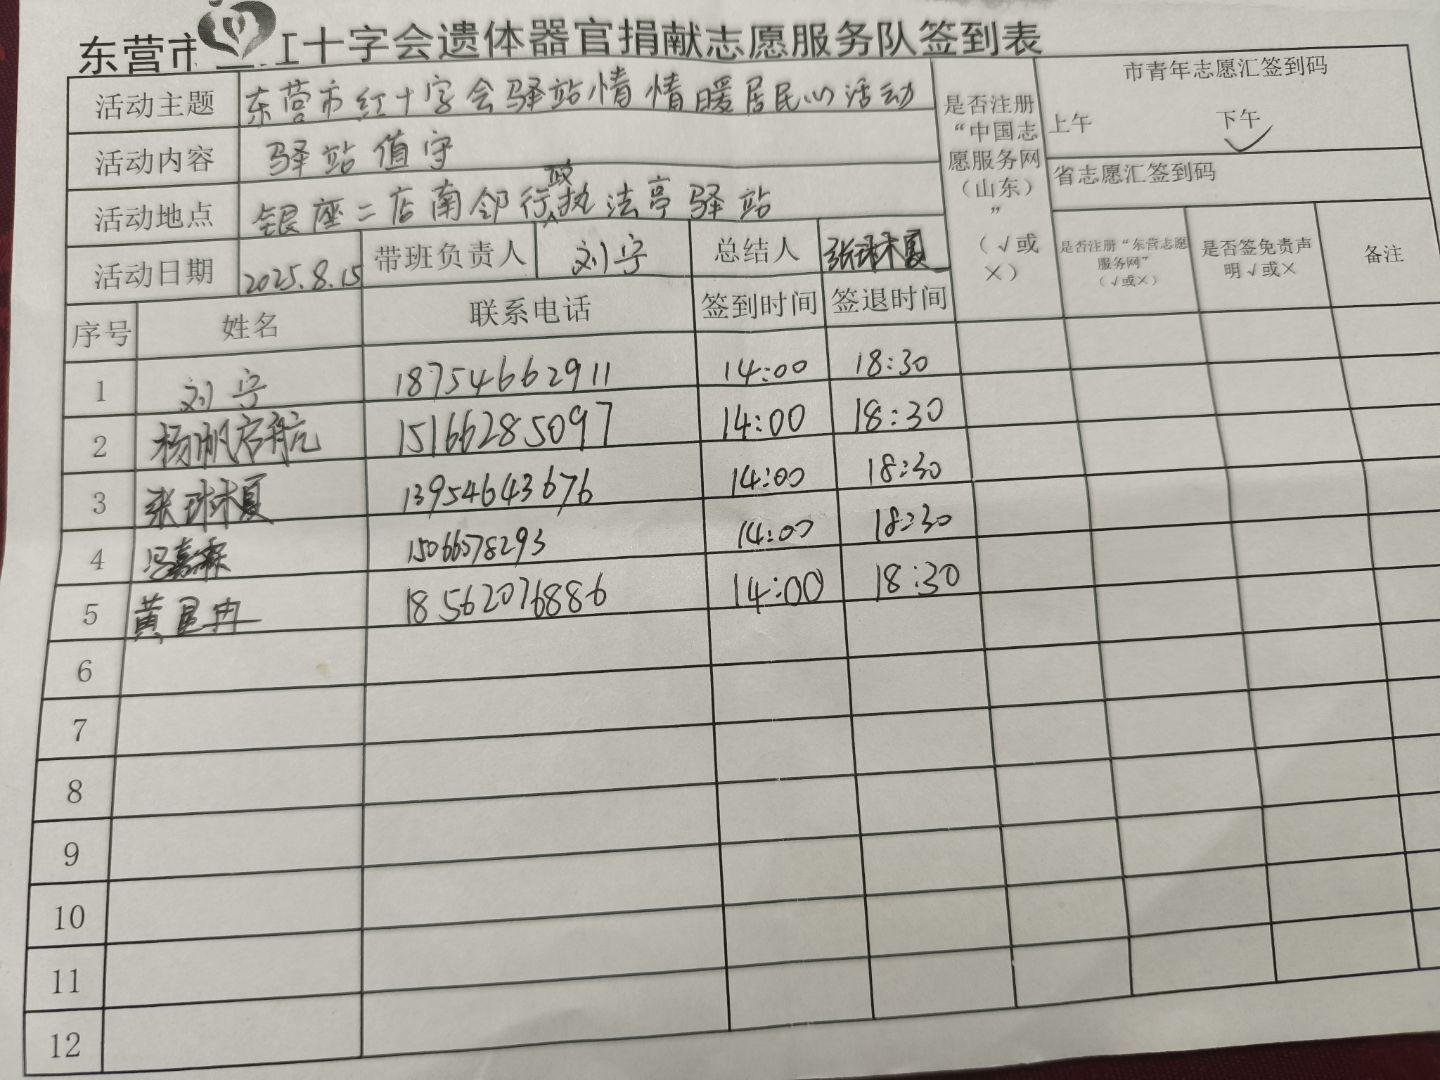 东营市红十字会遗体器官捐献志愿服务队签到表
活动主题 东营市红十字会驿站情情暖居民心活动
活动内容 驿站值守
活动地点 银座二店南邻行政执法亭驿站
活动日期 2025.8.15 带班负责人 刘宁 总结人 张琳夏
是否注册“中国志愿服务网（山东）”（√或×）
市青年志愿汇签到码
上午 下午 ✓
省志愿汇签到码
是否注册“东营志愿服务网”（√或×） 是否签免责声明√或× 备注
序号 姓名 联系电话 签到时间 签退时间
1 刘宁 18754662911 14:00 18:30
2 杨帆启航 15166285097 14:00 18:30
3 张琳夏 13954643676 14:00 18:30
4 冯嘉霖 15066578293 14:00 18:30
5 黄星冉 18562076886 14:00 18:30
6
7
8
9
10
11
12